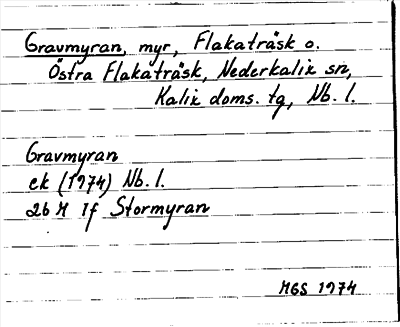 Gravmyran, myr, Flakaträsk o.
Östra Flakaträsk, Nederkalix sn,
Kalix doms. tg, Nb. l.
Gravmyran
ek (1974) Nb. l.
26 M 1f Stormyran
MGS 1974